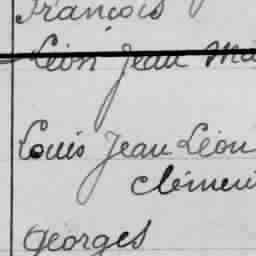 François
Léon Jean Ma
Louis Jean Léon
Clémen
Georges